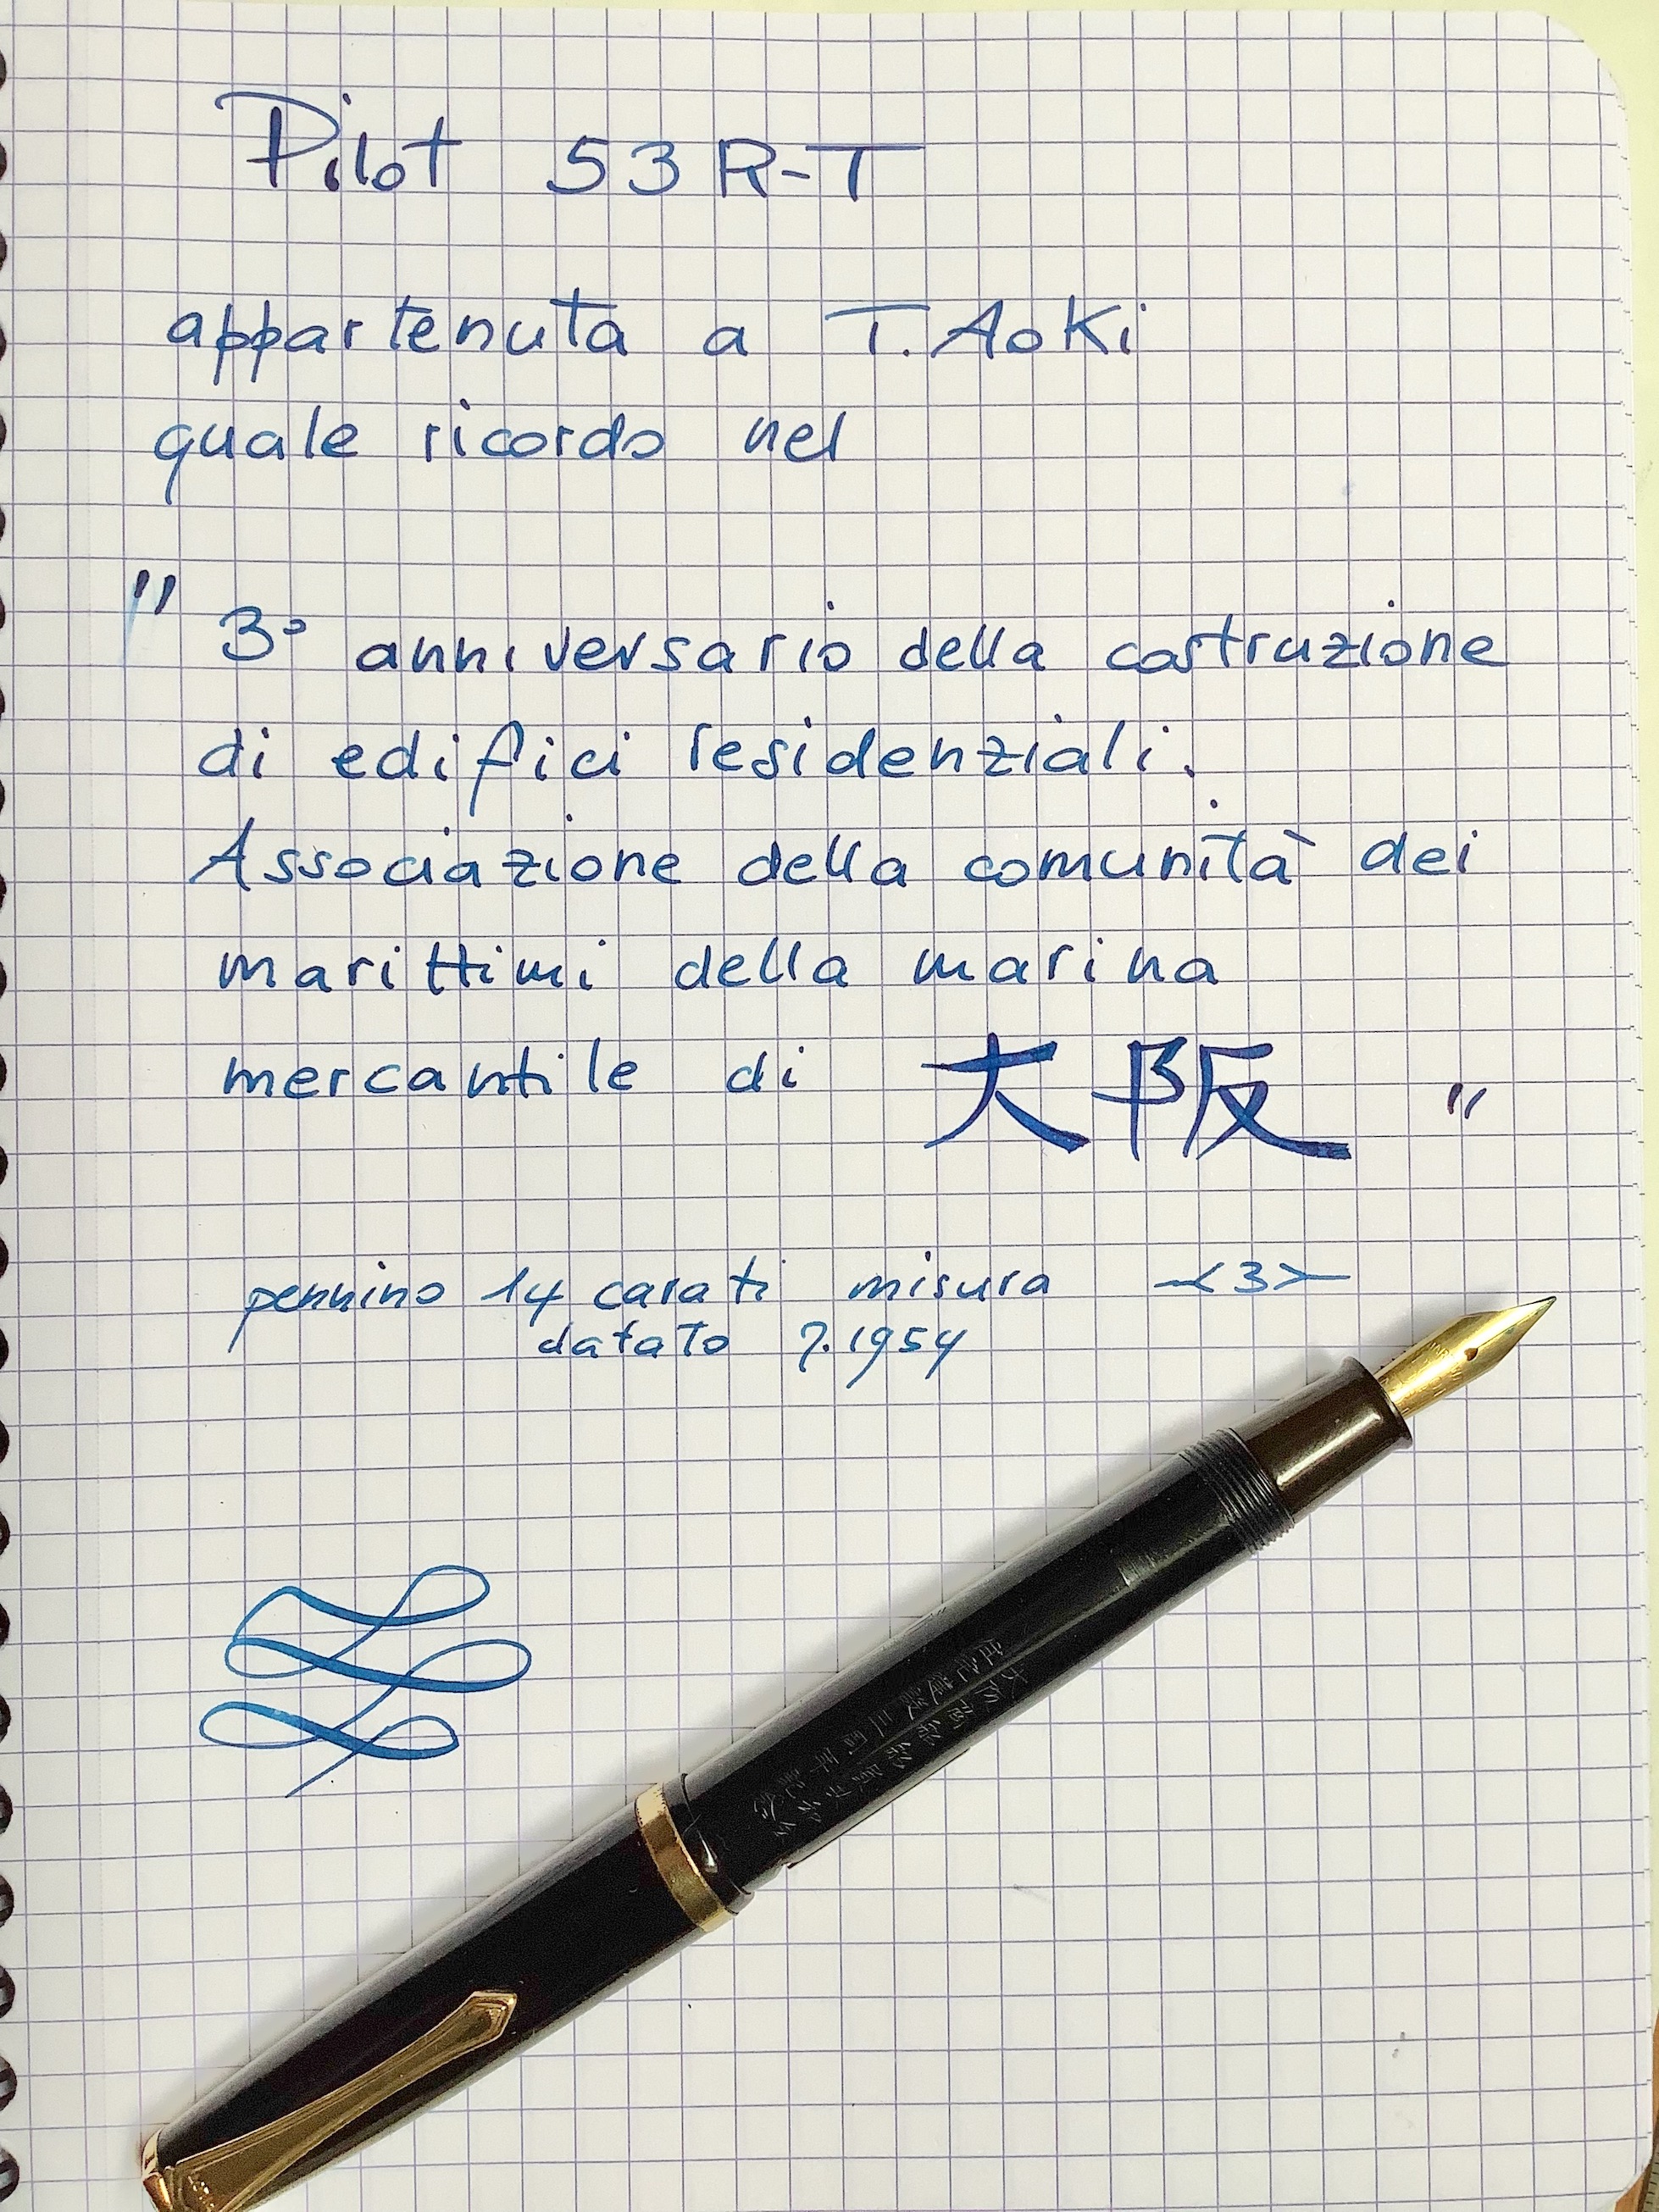 Pilot 53R-T
appartenuta a T. Aoki
quale ricordo nel
" 3° anniversario della costruzione
di edifici residenziali.
Associazione della comunità dei
marittimi della marina
mercantile di 大阪 "
pennino 14 carati misura -<3>-
datato 7.1954